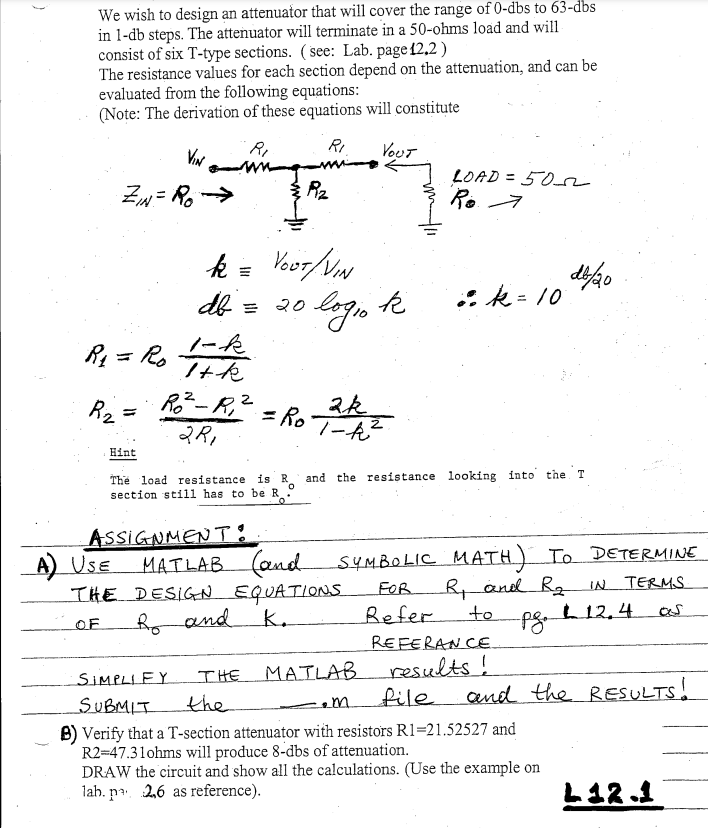 We wish to design an attenuator that will cover the range of 0-dbs to 63-dbs
in 1-db steps. The attenuator will terminate in a 50-ohms load and will
consist of six T-type sections. ( see: Lab. page 12,2 )
The resistance values for each section depend on the attenuation, and can be
evaluated from the following equations:
(Note: The derivation of these equations will constitute
VIN R1 R1 VOUT
ZIN = R0 → R2 LOAD = 50Ω
R0 →
k ≡ VOUT/VIN
db ≡ 20 log10 k ∴ k = 10^db/20
R1 = R0 (1-k)/(1+k)
R2 = (R0² - R1²)/(2R1) = R0 2k/(1-k²)
Hint
The load resistance is Ro and the resistance looking into the T
section still has to be Ro.
ASSIGNMENT:
A) USE MATLAB (and SYMBOLIC MATH) TO DETERMINE
THE DESIGN EQUATIONS FOR R1 and R2 IN TERMS
OF Ro and K. Refer to pg. L 12.4 as
REFERANCE
SIMPLIFY THE MATLAB results!
SUBMIT the —.m file and the RESULTS!
B) Verify that a T-section attenuator with resistors R1=21.52527 and
R2=47.31ohms will produce 8-dbs of attenuation.
DRAW the circuit and show all the calculations. (Use the example on
lab. 2,6 as reference).
L12.1